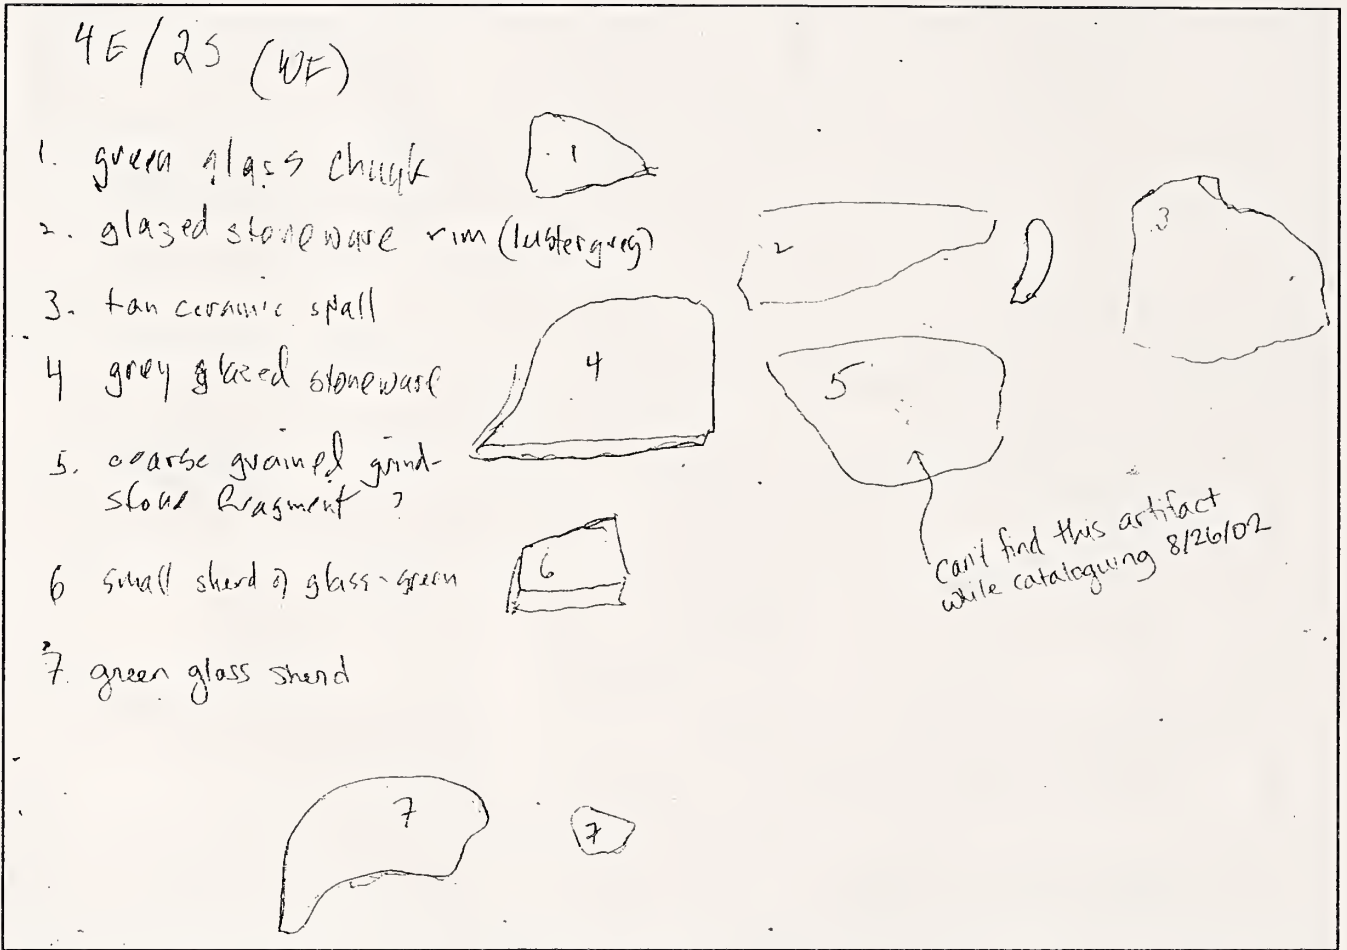 4E/2S (WE)
1. green glass chunk
2. glazed stoneware rim (luster grey)
3. tan ceramic spall
4 grey glazed stoneware
5. coarse grained grind-
stone fragment ?
6 small sherd of glass-green
7. green glass sherd
1
2
3
4
5
can't find this artifact
while cataloguing 8/26/02
6
7
7